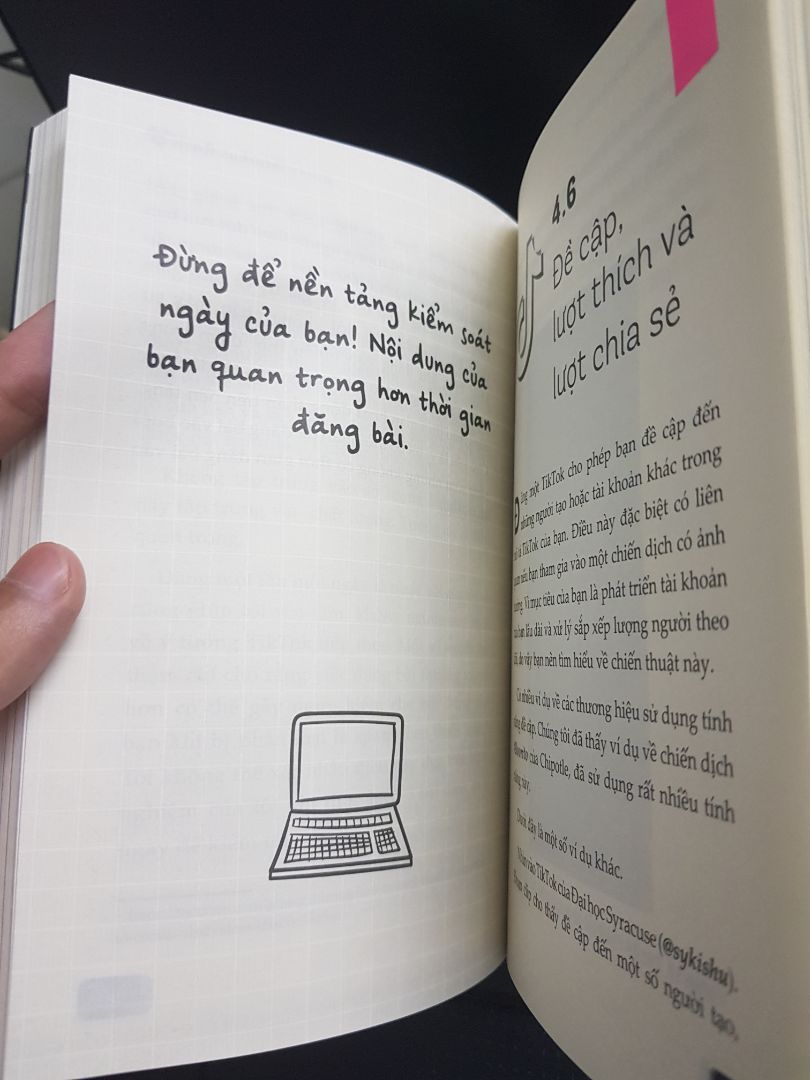 Đừng để nền tảng kiểm soát
ngày của bạn! Nội dung của
bạn quan trọng hơn thời gian
đăng bài.
4.6
Đề cập,
lượt thích và
lượt chia sẻ
một TikTok cho phép bạn đề cập đến
những người tạo hoặc tài khoản khác trong
TikTok của bạn. Điều này đặc biệt có liên
bạn tham gia vào một chiến dịch có ảnh
Vì mục tiêu của bạn là phát triển tài khoản
lâu dài và xử lý sắp xếp lượng người theo
do vậy bạn nên tìm hiểu về chiến thuật này.
Có nhiều ví dụ về các thương hiệu sử dụng tính
đề cập. Chúng tôi đã thấy ví dụ về chiến dịch
của Chipotle, đã sử dụng rất nhiều tính
này.
Dưới đây là một số ví dụ khác.
Nhấn vào TikTok của Đại học Syracuse (@sykishu).
cho thấy đề cập đến một số người tạo,